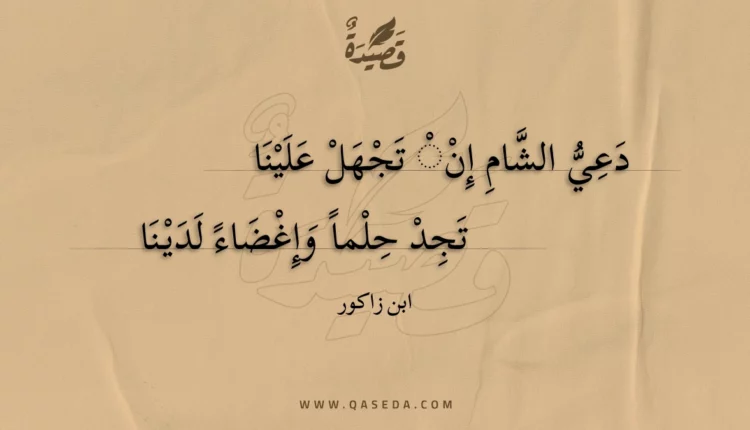 قَصِيدَةٌ
دَعِيُّ الشَّامِ إِنْ ْ تَجْهَلْ عَلَيْنَا
تَجِدْ حِلْماً وَإِغْضَاءً لَدَيْنَا
ابن زاكور
WWW.QASEDA.COM